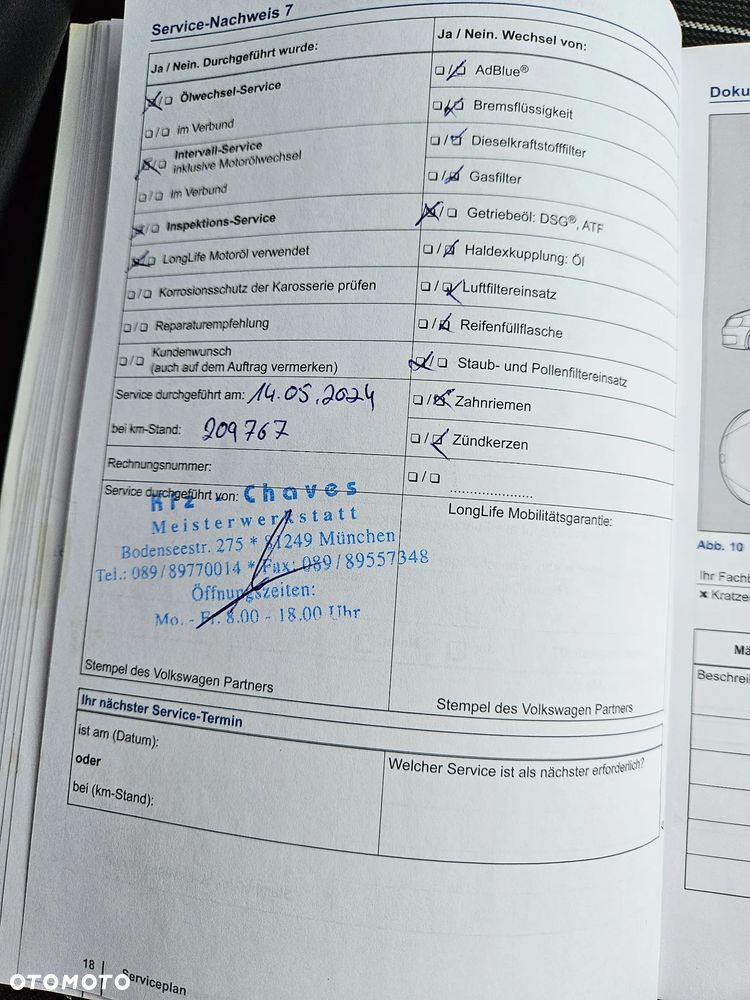 Service-Nachweis 7
Ja / Nein. Durchgeführt wurde:
Ölwechsel-Service
im Verbund
Intervall-Service
inklusive Motorölwechsel
im Verbund
Inspektions-Service
LongLife Motoröl verwendet
Korrosionsschutz der Karosserie prüfen
Reparaturempfehlung
Kundenwunsch
(auch auf dem Auftrag vermerken)
Service durchgeführt am: 14.05.2024
bei km-Stand: 209767
Rechnungsnummer:
Service durchgeführt von:
Kfz - Chaves
Meisterwerkstatt
Bodenseestr. 275 * 81249 München
Tel.: 089/89770014 * Fax: 089/89557348
Öffnungszeiten:
Mo. - Fr. 8.00 - 18.00 Uhr
Stempel des Volkswagen Partners
Ja / Nein. Wechsel von:
AdBlue®
Bremsflüssigkeit
Dieselkraftstofffilter
Gasfilter
Getriebeöl: DSG®, ATF
Haldexkupplung: Öl
Luftfiltereinsatz
Reifenfüllflasche
Staub- und Pollenfiltereinsatz
Zahnriemen
Zündkerzen
LongLife Mobilitätsgarantie:
Stempel des Volkswagen Partners
Ihr nächster Service-Termin
ist am (Datum):
oder
bei (km-Stand):
Welcher Service ist als nächster erforderlich?
18
Serviceplan
Doku
Abb. 10
Ihr Fach
Kratze
Mä
Beschrei
OTOMOTO